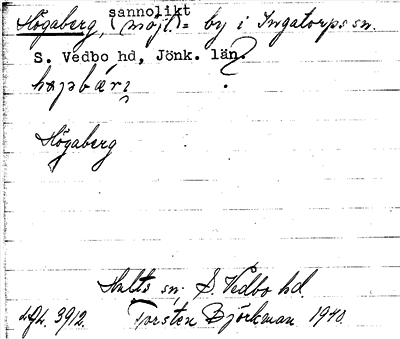 Högaberg, sannolikt (möjl.) = by i Ingatorps sn.
S. Vedbo hd, Jönk. län.
Högaberg
Hults sn. S. Vedbo hd.
3912. Torsten Björkman 1940.